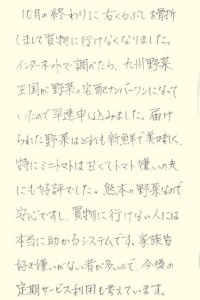 10月の終わりに右くるぶしを骨折
しまして買物に行けなくなりました。
インターネットで調べたら、九州野菜
王国が野菜の宅配ナンバーワンになって
いたので早速申し込みました。届け
られた野菜はどれも新鮮で美味しく、
特にミニトマトは甘くてトマト嫌いの夫
にも好評でした。熊本の野菜なので
安心ですし、買物に行けない人には
本当に助かるシステムです。家族皆
好き嫌いがない者が多いので、今後の
定期サービス利用も考えています。